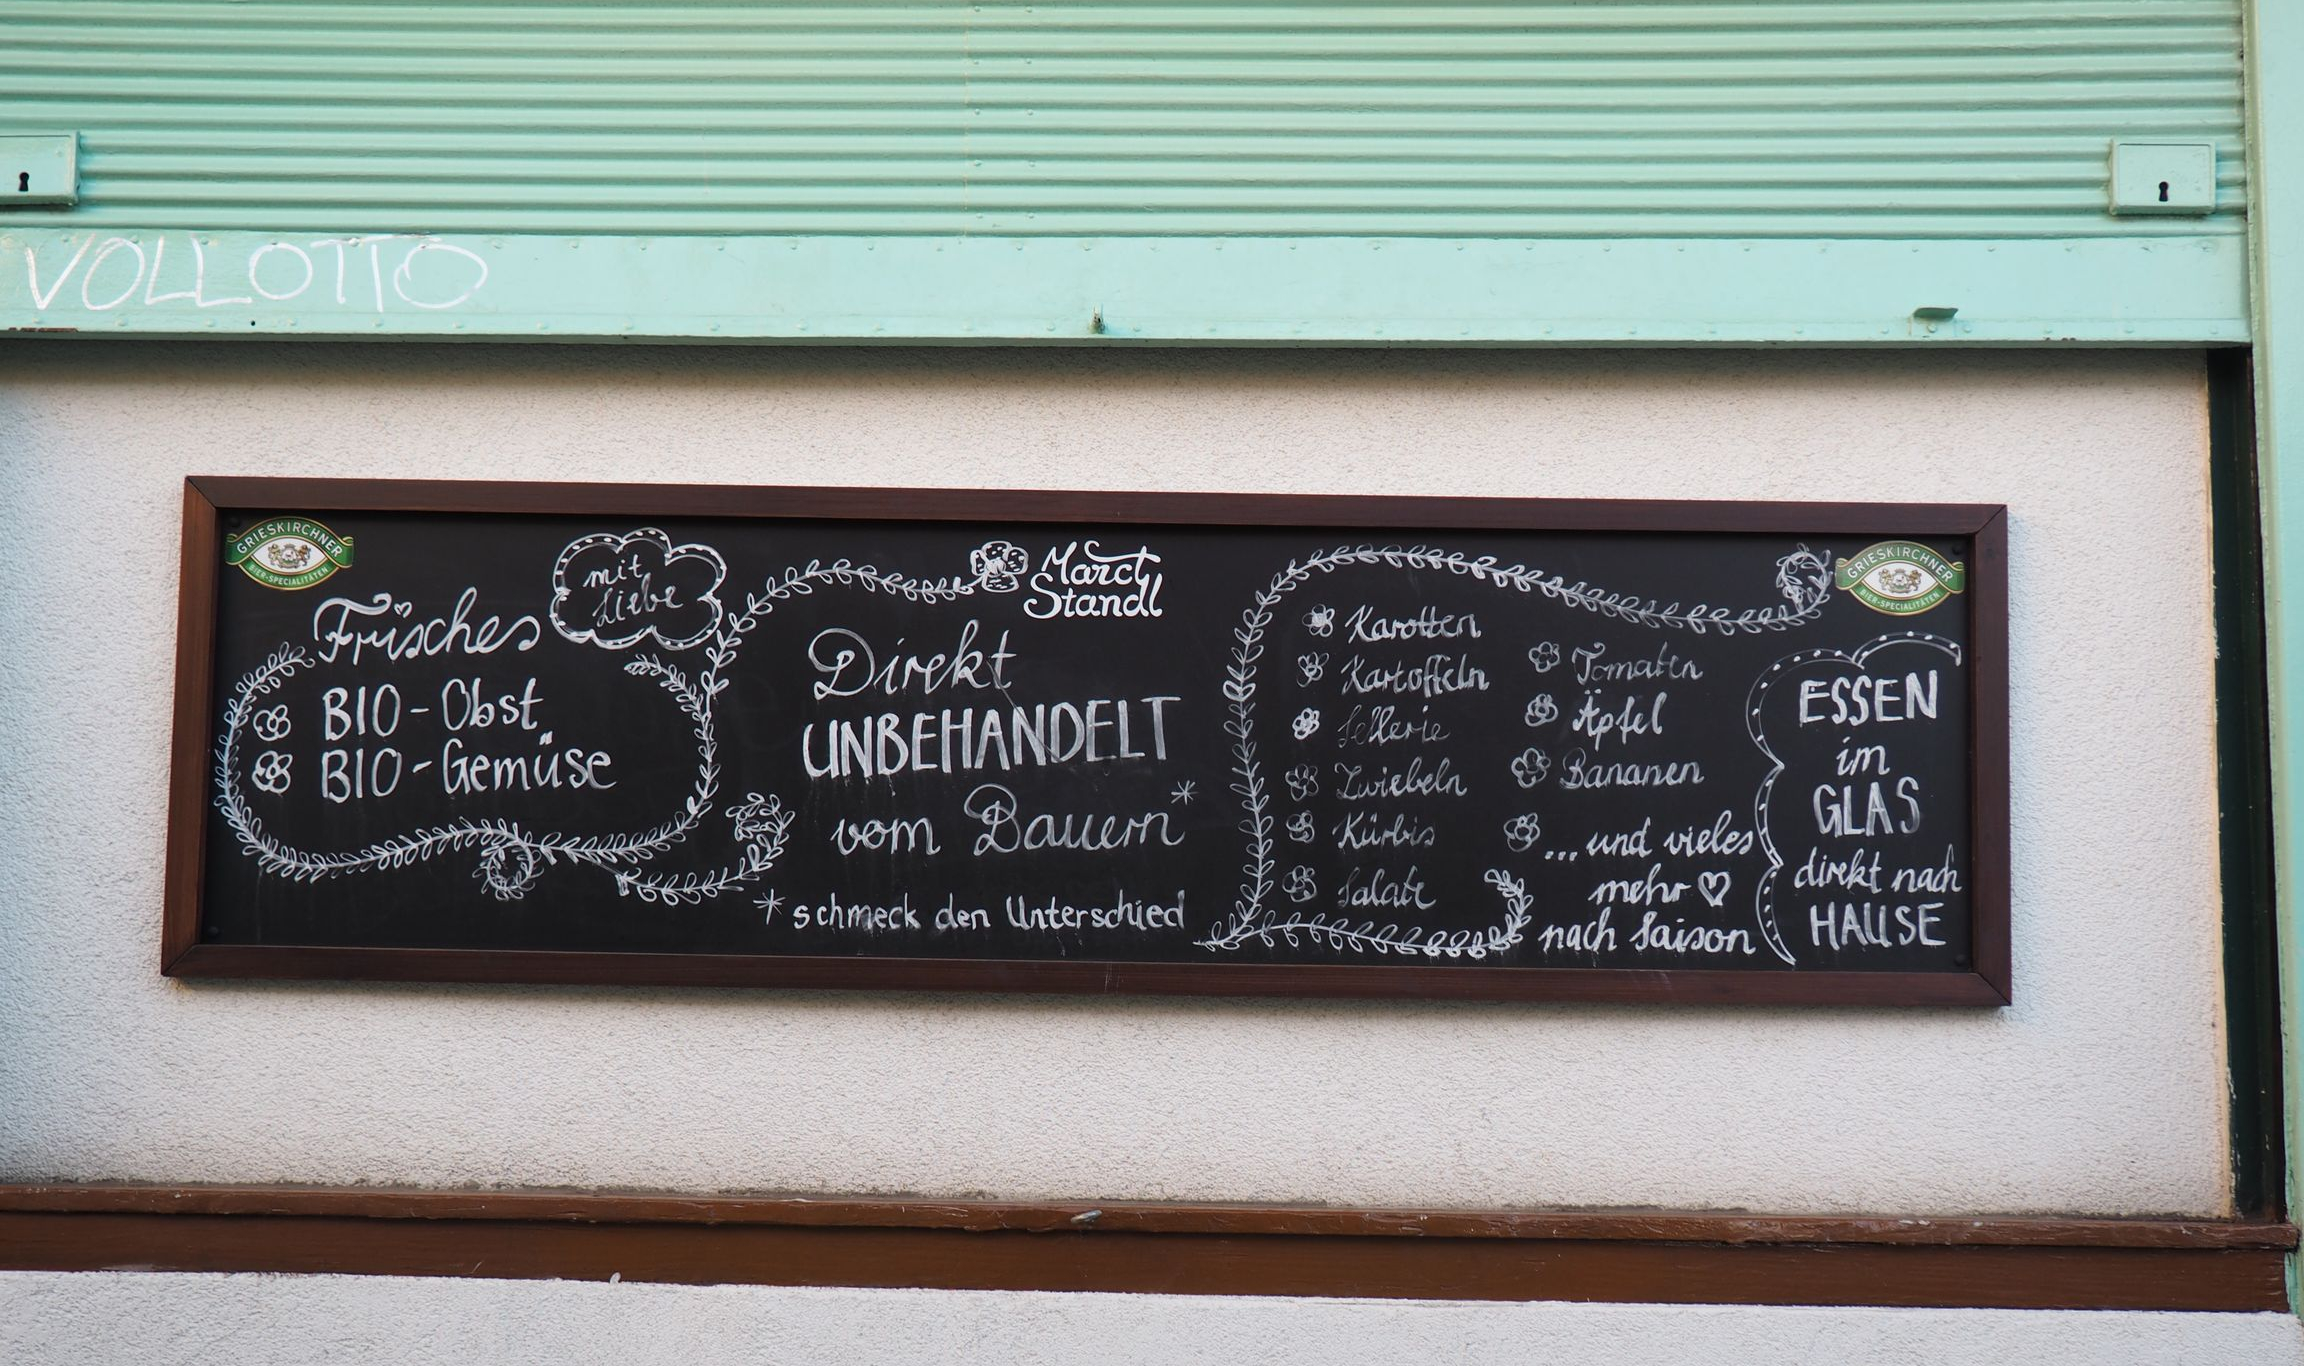 VOLLOTTO
GRIESKIRCHNER
BIER-SPECIALITÄTEN
Frisches
mit
Liebe
BIO-Obst
BIO-Gemüse
Marct
Standl
Direkt
UNBEHANDELT
vom Bauern*
*schmeck den Unterschied
Karotten
Kartoffeln
Sellerie
Zwiebeln
Kürbis
Salate
Tomaten
Äpfel
Bananen
...und vieles
mehr
nach Saison
GRIESKIRCHNER
BIER-SPECIALITÄTEN
ESSEN
im
GLAS
direkt nach
HAUSE